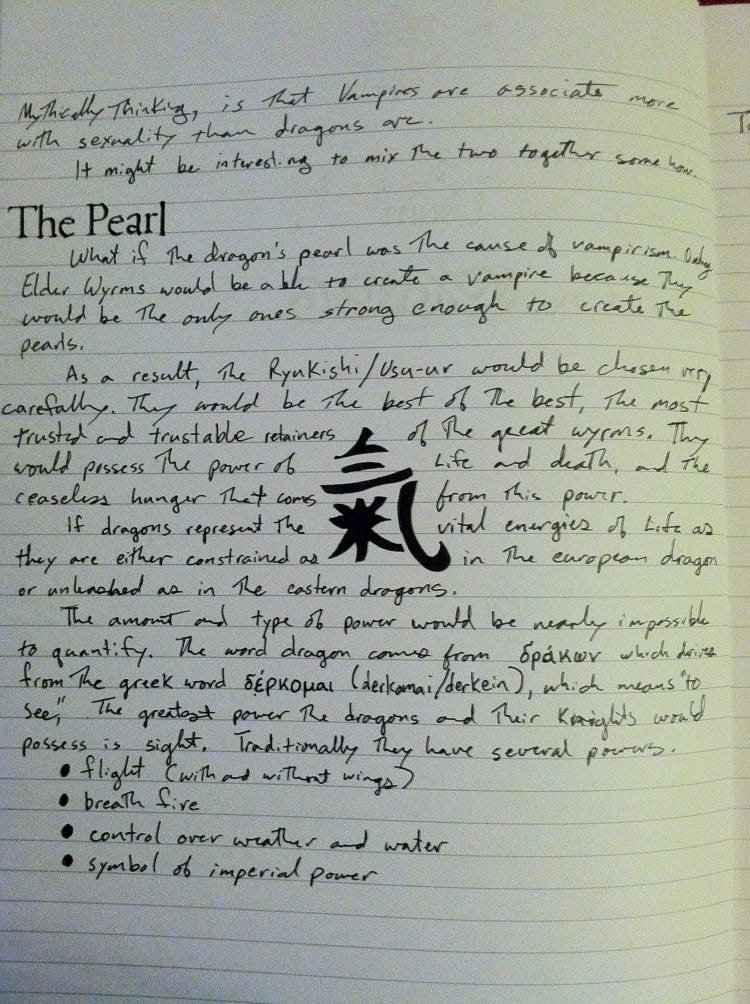 Mythically Thinking, is that Vampires are associate more
with sexuality than dragons are.
It might be interesting to mix the two together some how.
The Pearl
What if the dragon's pearl was the cause of vampirism. Only
Elder Wyrms would be able to create a vampire because they
would be the only ones strong enough to create the
pearls.
As a result, the RyuKishi/Usu-ur would be chosen very
carefully. They would be the best of the best, the most
trusted and trustable retainers of the great wyrms. They
would possess the power of Life and death, and the
ceaseless hunger that comes from this power.
氣
If dragons represent the vital energies of Life as
they are either constrained as in the european dragon
or unleashed as in the eastern dragons.
The amount and type of power would be nearly impossible
to quantify. The word dragon comes from δράκων which derives
from the greek word δέρκομαι (derkomai/derkein), which means "to
see," The greatest power the dragons and their Knights would
possess is sight. Traditionally they have several powers.
• flight (with and without wings)
• breath fire
• control over weather and water
• symbol of imperial power